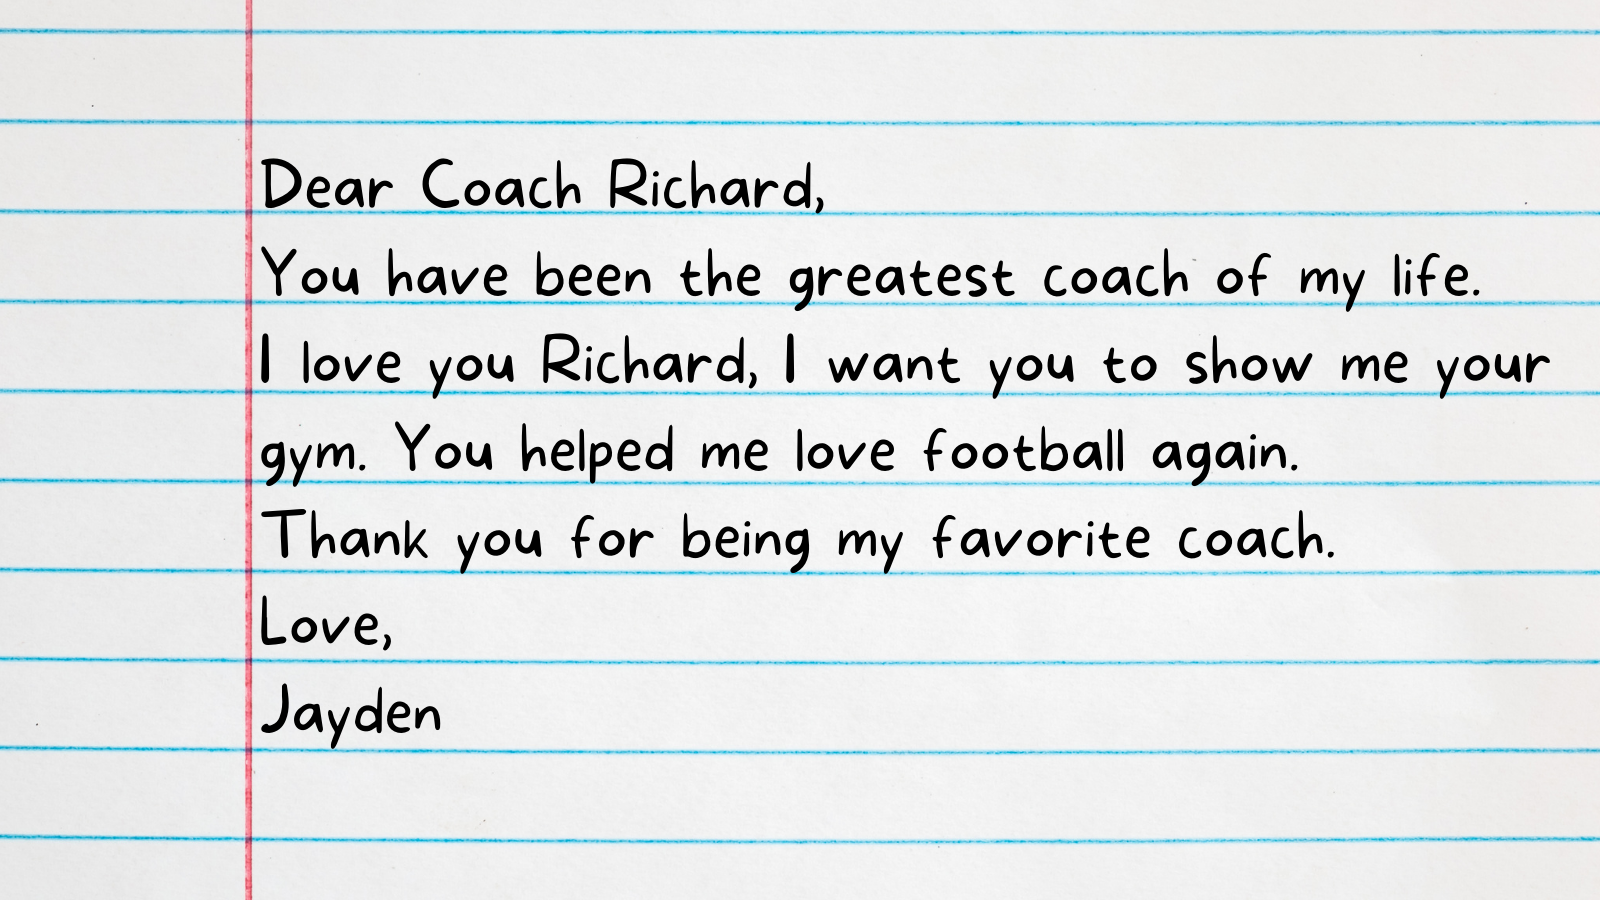 Dear Coach Richard,
You have been the greatest coach of my life.
I love you Richard, I want you to show me your
gym. You helped me love football again.
Thank you for being my favorite coach.
Love,
Jayden